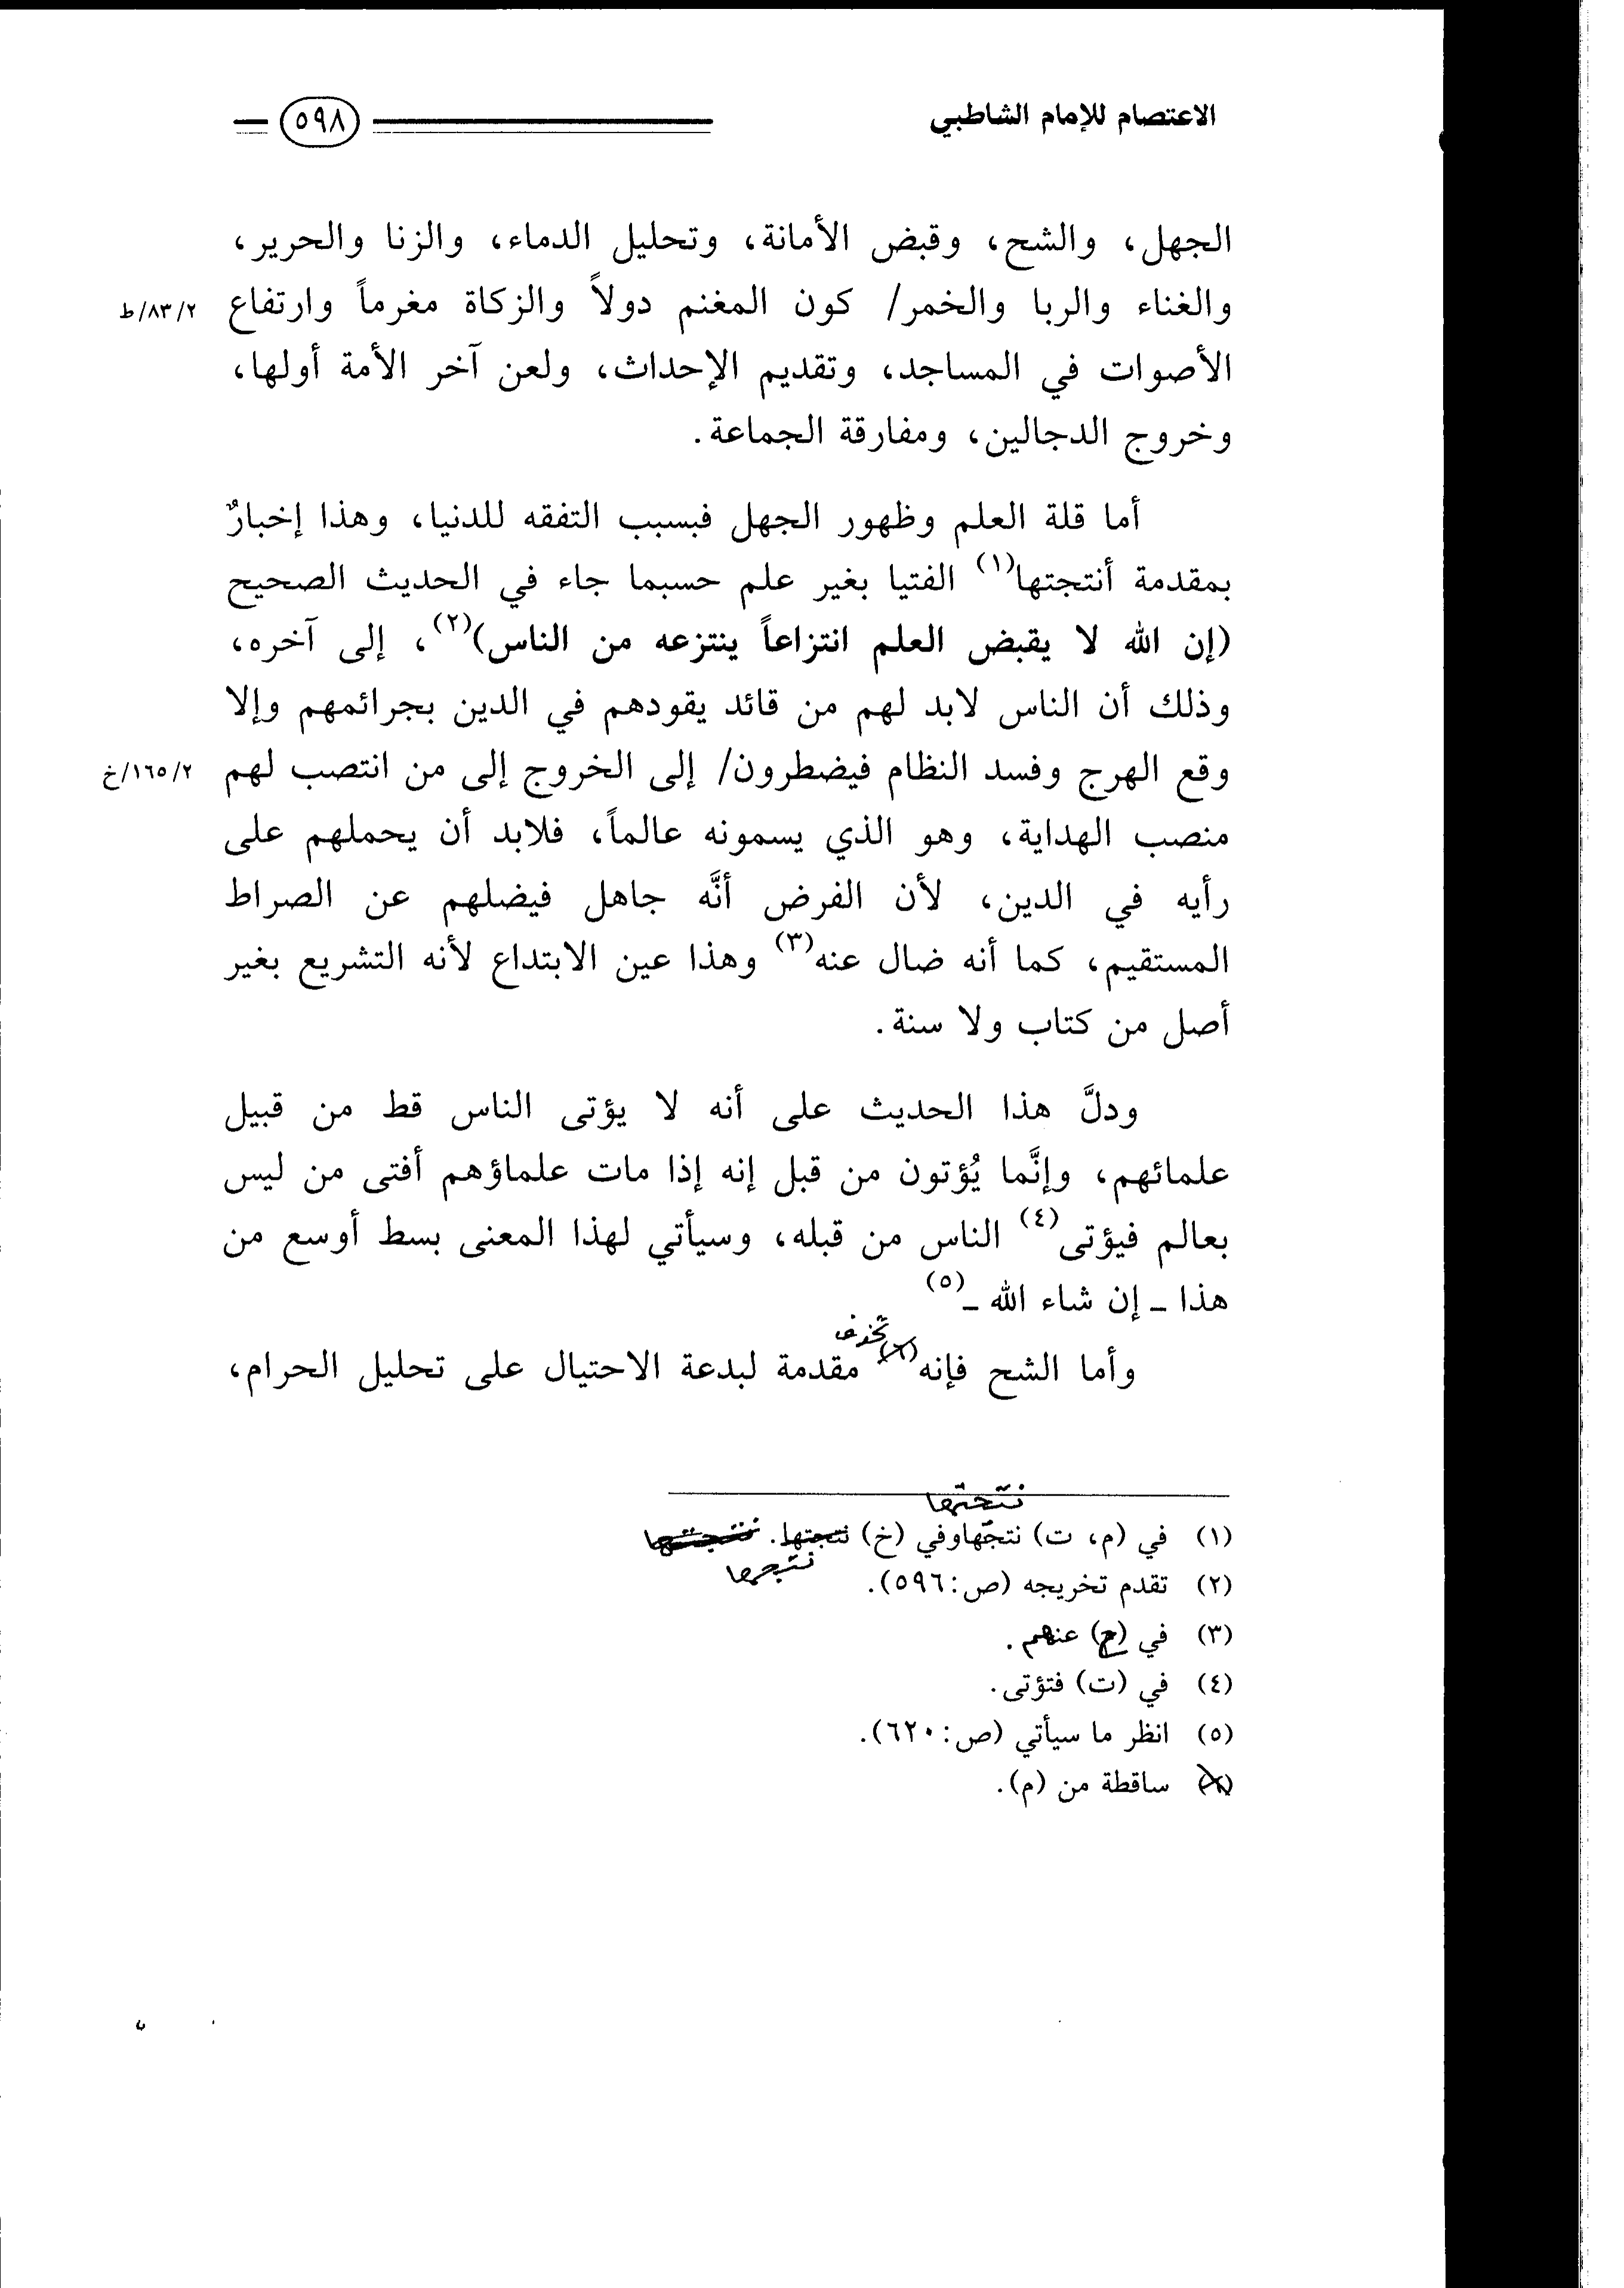 الاعتصام للإمام الشاطبي
٥٩٨
الجهل، والشح، وقبض الأمانة، وتحليل الدماء، والزنا والحرير،
والغناء والربا والخمر/ كون المغنم دولاً والزكاة مغرماً وارتفاع
٢/٨٣/ط
الأصوات في المساجد، وتقديم الإحداث، ولعن آخر الأمة أولها،
وخروج الدجالين، ومفارقة الجماعة.
أما قلة العلم وظهور الجهل فبسبب التفقه للدنيا، وهذا إخبارٌ
بمقدمة أنتجتها(١) الفتيا بغير علم حسبما جاء في الحديث الصحيح
(إن الله لا يقبض العلم انتزاعاً ينتزعه من الناس)(٢)، إلى آخره،
وذلك أن الناس لابد لهم من قائد يقودهم في الدين بجرائمهم وإلا
وقع الهرج وفسد النظام فيضطرون/ إلى الخروج إلى من انتصب لهم
٢/١٦٥/خ
منصب الهداية، وهو الذي يسمونه عالماً، فلابد أن يحملهم على
رأيه في الدين، لأن الفرض أنَّه جاهل فيضلهم عن الصراط
المستقيم، كما أنه ضال عنه(٣) وهذا عين الابتداع لأنه التشريع بغير
أصل من كتاب ولا سنة.
ودلَّ هذا الحديث على أنه لا يؤتى الناس قط من قبيل
علمائهم، وإنَّما يُؤتون من قبل إنه إذا مات علماؤهم أفتى من ليس
بعالم فيؤتى(٤) الناس من قبله، وسيأتي لهذا المعنى بسط أوسع من
هذا ـ إن شاء الله ـ(٥)
تحذف
وأما الشح فإنه(٦) مقدمة لبدعة الاحتيال على تحليل الحرام،
(١) في (م، ت) نتجّهاوفي (خ) نتجتها.
(٢) تقدم تخريجه (ص: ٥٩٦).
(٣) في (م) عنهم.
(٤) في (ت) فتؤتى.
(٥) انظر ما سيأتي (ص: ٦٢٠).
(٦) ساقطة من (م).